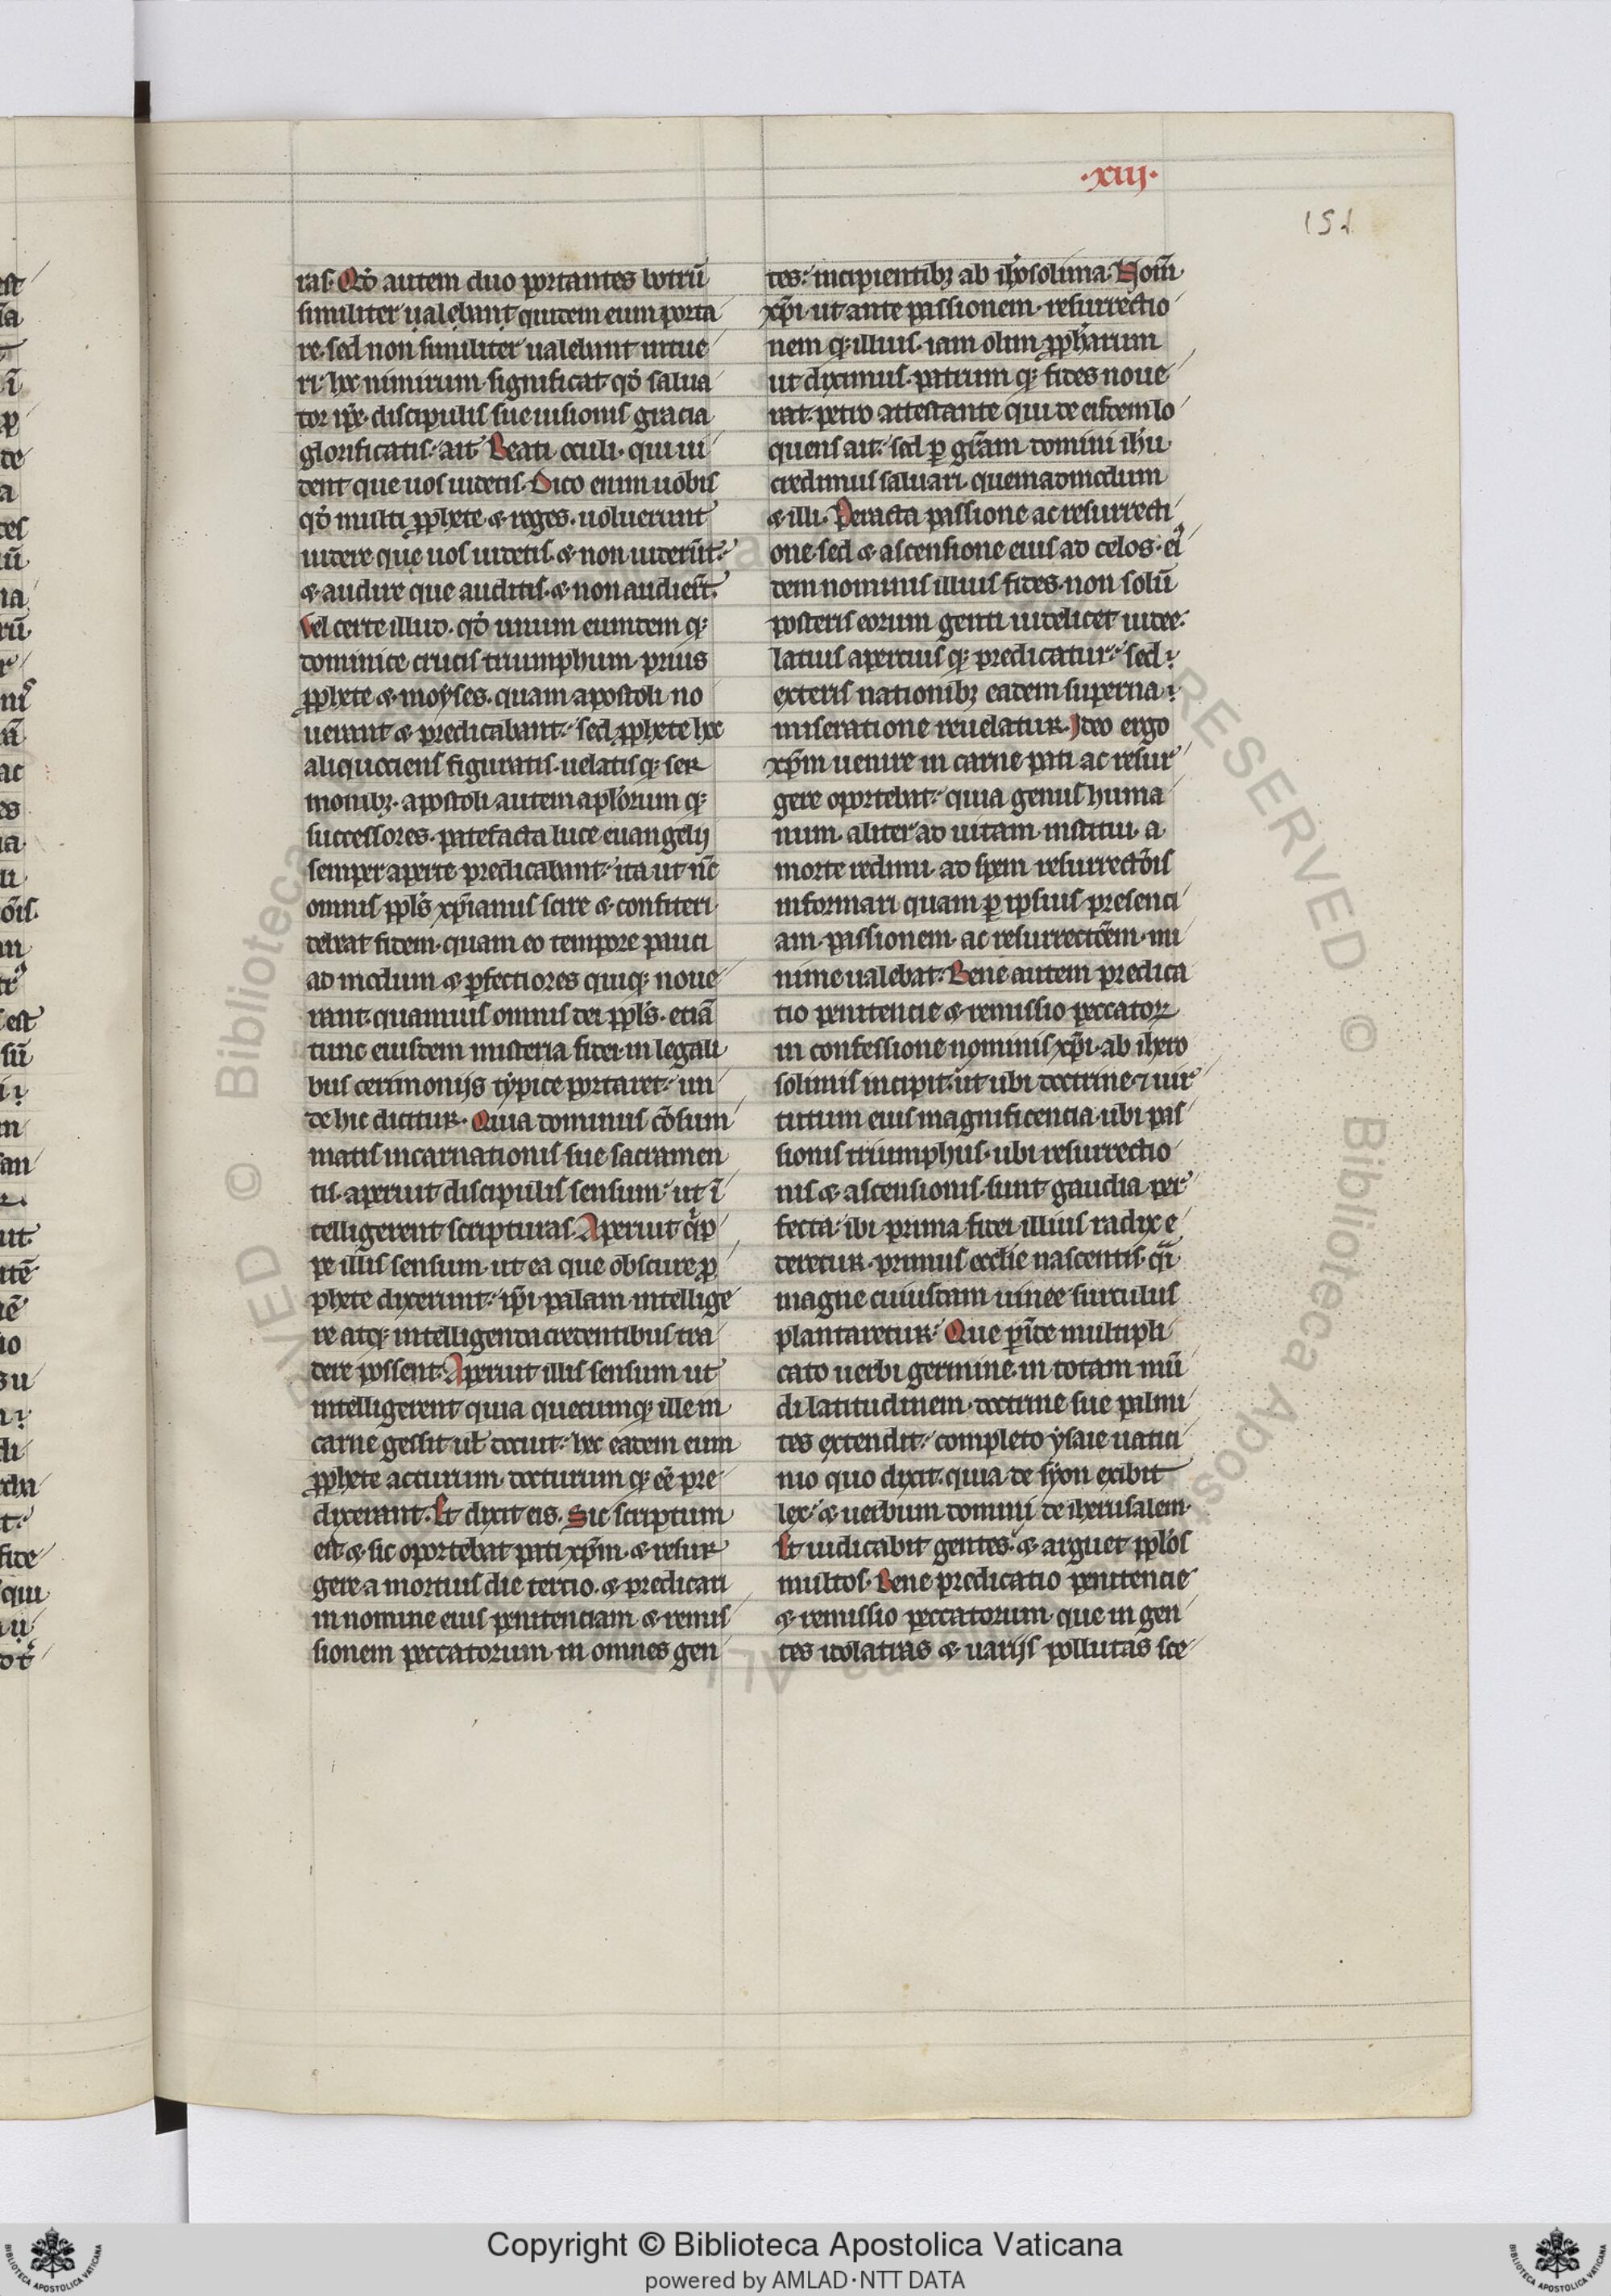 ·xiij·
151
ras. Qđ autem duo portantes botrū
similiter ualebant quidem eum porta
re. sed non similiter ualebant intue
ri. hec nimirum significat qđ salua
tor ip̄e discipulis sue uisionis gracia
glorificatis. ait Beati oculi. qui ui
dent que uos uidetis. Dico enim uobis
qđ multi ꝓphete & reges. uoluerunt
uidere que uos uidetis. & non uiderūt.
& audire que auditis. & non audier̄t.
Vel certe illud. qđ unum eumdem q;
dominice crucis triumphum. prius
ꝓphete & moyses. quam apostoli no
uerant & predicabant. sed ꝓphete hec
aliquociens figuratis. uelatis q; ser
monibꝫ. apostoli autem apl'orum q;
successores. patefacta luce euangelij
semper aperte predicabant. ita ut nc̄
omnis ppl's xp̄ianus scire & confiteri
debeat fidem. quam eo tempore pauci
ad modum & ꝑfectiores quiq; noue
rant. quamuis omnis dei ppl's. etiā
tunc eiusdem misteria fidei. in legali
bus cerimonijs typice portaret. un
de hic dicitur. Quia dominus cōsum
matis incarnationis sue sacramen
tis. aperuit discipulis sensum. ut ī
telligerent scripturas. Aperuit qͥp
pe illis sensum. ut ea que obscure ꝓ
phete dixerunt. ip̄i palam intellige
re atq; intelligenda credentibus tra
dere possent. Aperuit illis sensum ut
intelligerent quia quecumq; ille in
carne gessit ul' docuit. hec eadem eum
ꝓphete acturum. docturum q; eē pre
dixerant. Et dixit eis. Sic scriptum
est & sic oportebat pati xp̄m. & resur
gere a mortuis die tercio. & predicari
in nomine eius penitenciam & remis
sionem peccatorum in omnes gen
tes. incipientibꝫ ab ih'osolima. Nom̄
xp̄i. ut ante passionem. resurrectio
nem q; illius. iam olim ꝓpharum
ut diximus. patrum q; fides noue
rat. petro attestante qui de eisdem lo
quens ait. sed ꝑ gr̄am domini ih'u
credimus saluari. quemadmodum
& illi. Peracta passione ac resurrecti
one. sed & ascensione eius ad celos. ei
dem nominis illius fides. non solū
posteris eorum genti uidelicet iudee.
latius apertius q; predicatur. sed
exteris nationibꝫ eadem superna
miseratione reuelatur. Ideo ergo
xp̄m uenire in carne pati ac resur
gere oportebat. quia genus huma
num. aliter ad uitam institui. a
morte redimi. ad spem resurrectōis
informari quam ꝑ ipsius presenci
am. passionem. ac resurrectōem. mi
nime ualebat. Bene autem predica
tio penitencie & remissio peccatoꝝ
in confessione nominis xp̄i. ab ihero
solimis incipit. ut ubi doctrine ⁊ uir
tutum eius magnificencia. ubi pas
sionis triumphus. ubi resurrectio
nis & ascensionis. sunt gaudia per
fecta. ibi prima fidei illius radix e
deretur. primus eccl'ie nascentis. qͣi
magne cuiusdam uinee surculus
plantaretur. Que ꝑīde multipli
cato uerbi germine. in totam mū
di latitudinem. doctrine sue palmi
tes extendit. completo ysaie uatici
nio quo dixit. quia de syon exibit
lex. & uerbum domini de iherusalem.
Et iudicabit gentes. & arguet ppl'os
multos. Bene predicatio penitencie
& remissio peccatorum. que in gen
tes idolatras & uarijs pollutas sce
Copyright © Biblioteca Apostolica Vaticana
powered by AMLAD·NTT DATA